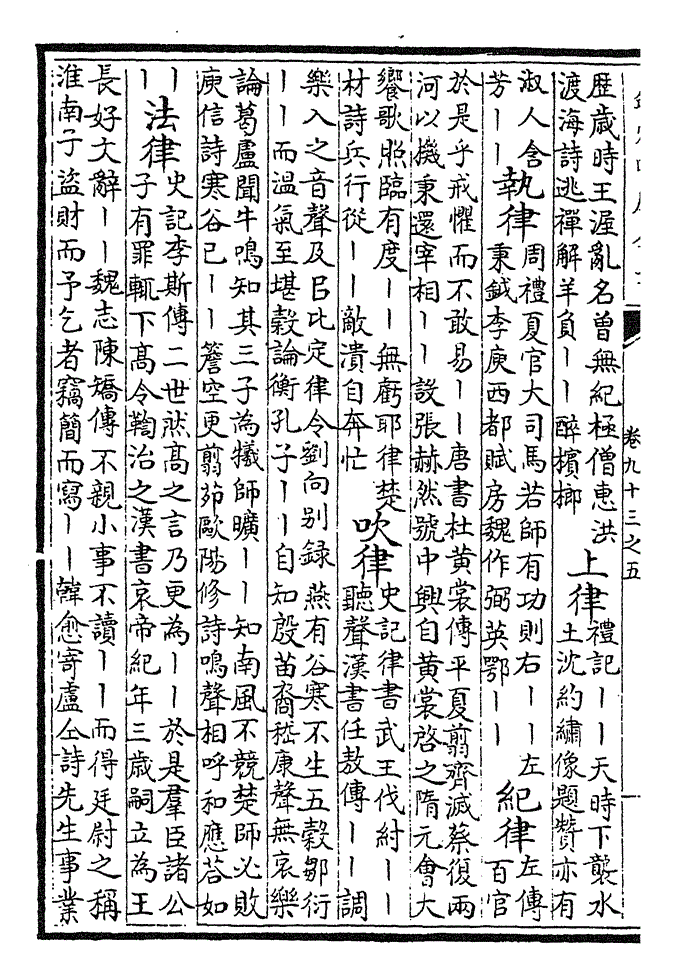 卷九十三之五
一
歷歲時王渥亂名曾無紀極僧惠洪
渡海詩逃禪解羊負丨丨醉檳榔
上律
禮記丨丨天時下襲水
土沈約繡像題贊亦有
淑人含
芳丨丨
執律
周禮夏官大司馬若師有功則右丨丨左
秉鉞李庾西都賦房魏作弼英鄂丨丨
紀律
左傳
百官
於是乎戒懼而不敢易丨丨唐書杜黃裳傳平夏翦齊滅蔡復兩
河以機秉還宰相丨丨設張赫然號中興自黃裳啓之隋元會大
饗歌照臨有度丨丨無虧耶律楚
材詩兵行從丨丨敵潰自奔忙
吹律
史記律書武王伐紂丨丨
聽聲漢書任敖傳丨丨調
樂入之音聲及以比定律令劉向别録燕有谷寒不生五穀鄒衍
丨丨而溫氣至堪穀論衡孔子丨丨自知殷苗裔嵇康聲無哀樂
論葛盧聞牛鳴知其三子為犧師曠丨丨知南風不競楚師必敗
庾信詩寒谷已丨丨簷空更翦茆歐陽修詩鳴聲相呼和應荅如
丨
丨
法律
史記李斯傳二世然高之言乃更為丨丨於是羣臣諸公
子有罪輒下高令鞫治之漢書哀帝紀年三歲嗣立為王
長好文辭丨丨魏志陳矯傳不親小事不讀丨丨而得廷尉之稱
淮南子盜財而予乞者竊簡而寫丨丨韓愈寄盧仝詩先生事業